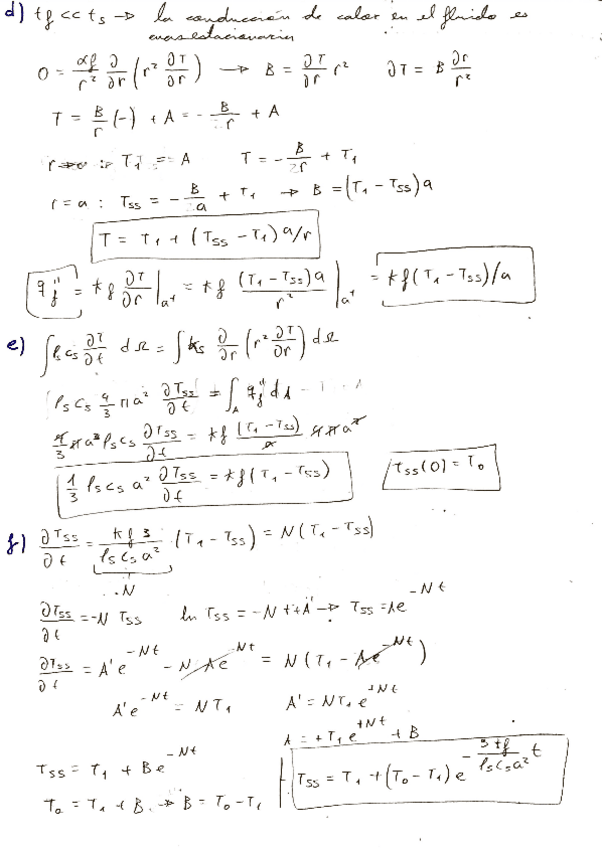 d) tf << ts → la conducción de calor en el fluido es
cuasiestacionaria
0 = αf/r² ∂/∂r (r² ∂T/∂r) → B = ∂T/∂r r²   ∂T = B ∂r/r²
T = B/r (-) + A = - B/r + A
r→∞ : T₁ = A   T = - B/r + T₁
r = a : Tss = - B/a + T₁ → B = (T₁ - Tss) a
T = T₁ + (Tss - T₁) a/r
q''f = kf ∂T/∂r |a⁺ = kf (T₁ - Tss) a / r² |a⁺ = kf (T₁ - Tss)/a
e) ∫ ρs cs ∂T/∂t dΩ = ∫ ks ∂/∂r (r² ∂T/∂r) dΩ
ρs cs 4/3 π a³ ∂Tss/∂t = ∫A q''f dA
4/3 π a³ ρs cs ∂Tss/∂t = kf (T₁ - Tss)/a 4 π a²
1/3 ρs cs a² ∂Tss/∂t = kf (T₁ - Tss)   Tss(0) = T₀
f) ∂Tss/∂t = kf 3 / ρs cs a² (T₁ - Tss) = N (T₁ - Tss)
N
∂Tss/∂t = -N Tss   ln Tss = -N t + A' → Tss = A e^-Nt
∂Tss/∂t = A' e^-Nt - N A e^-Nt = N (T₁ - A e^-Nt)
A' e^-Nt = N T₁   A' = N T₁ e^+Nt
A = + T₁ e^+Nt + B
Tss = T₁ + B e^-Nt
T₀ = T₁ + B → B = T₀ - T₁   Tss = T₁ + (T₀ - T₁) e^- 3 kf / ρs cs a² t